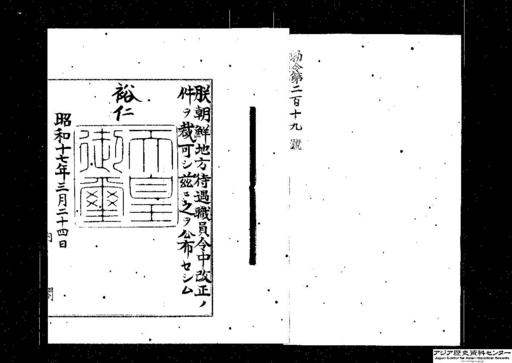 勅令第二百十九號
朕朝鮮地方待遇職員令中改正ノ
件ヲ裁可シ茲ニ之ヲ公布セシム
裕仁
天皇
御璽
昭和十七年三月二十四日
内閣
アジア歴史資料センター
Japan Center for Asian Historical Records